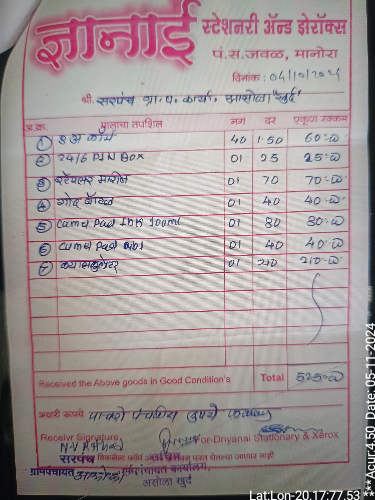 ज्ञानाई स्टेशनरी ॲन्ड झेरॉक्स
पं.स.जवळ, मानोरा
दिनांक :
श्री. सरपंच ग्रा.पं. कार्या. आसोला खुर्द
अ.क्र. मालाचा तपशिल नग दर एकुण रक्कम
1 40 1.50 60-00
2 24/6 PIN BOX 01 25 25-00
3 स्टॅपलर मशीन 01 70 70-00
4 गोंद बॉटल 01 40 40-00
5 Camel Pad INK 100ml 01 80 80-00
6 Camel Pad 01 40 40-00
7 01 210 210-00
Received the Above goods in Good Condition's Total 525-00
अक्षरी रूपये पाचशे पंचवीस रुपये
Receiver Signature For-Dnyanai Stationary & Xerox
सरपंच
ग्रामपंचायत
असोला खुर्द
Lat:Lon-20.17:77.53
**Acur:4.50 Date: 05-11-2024